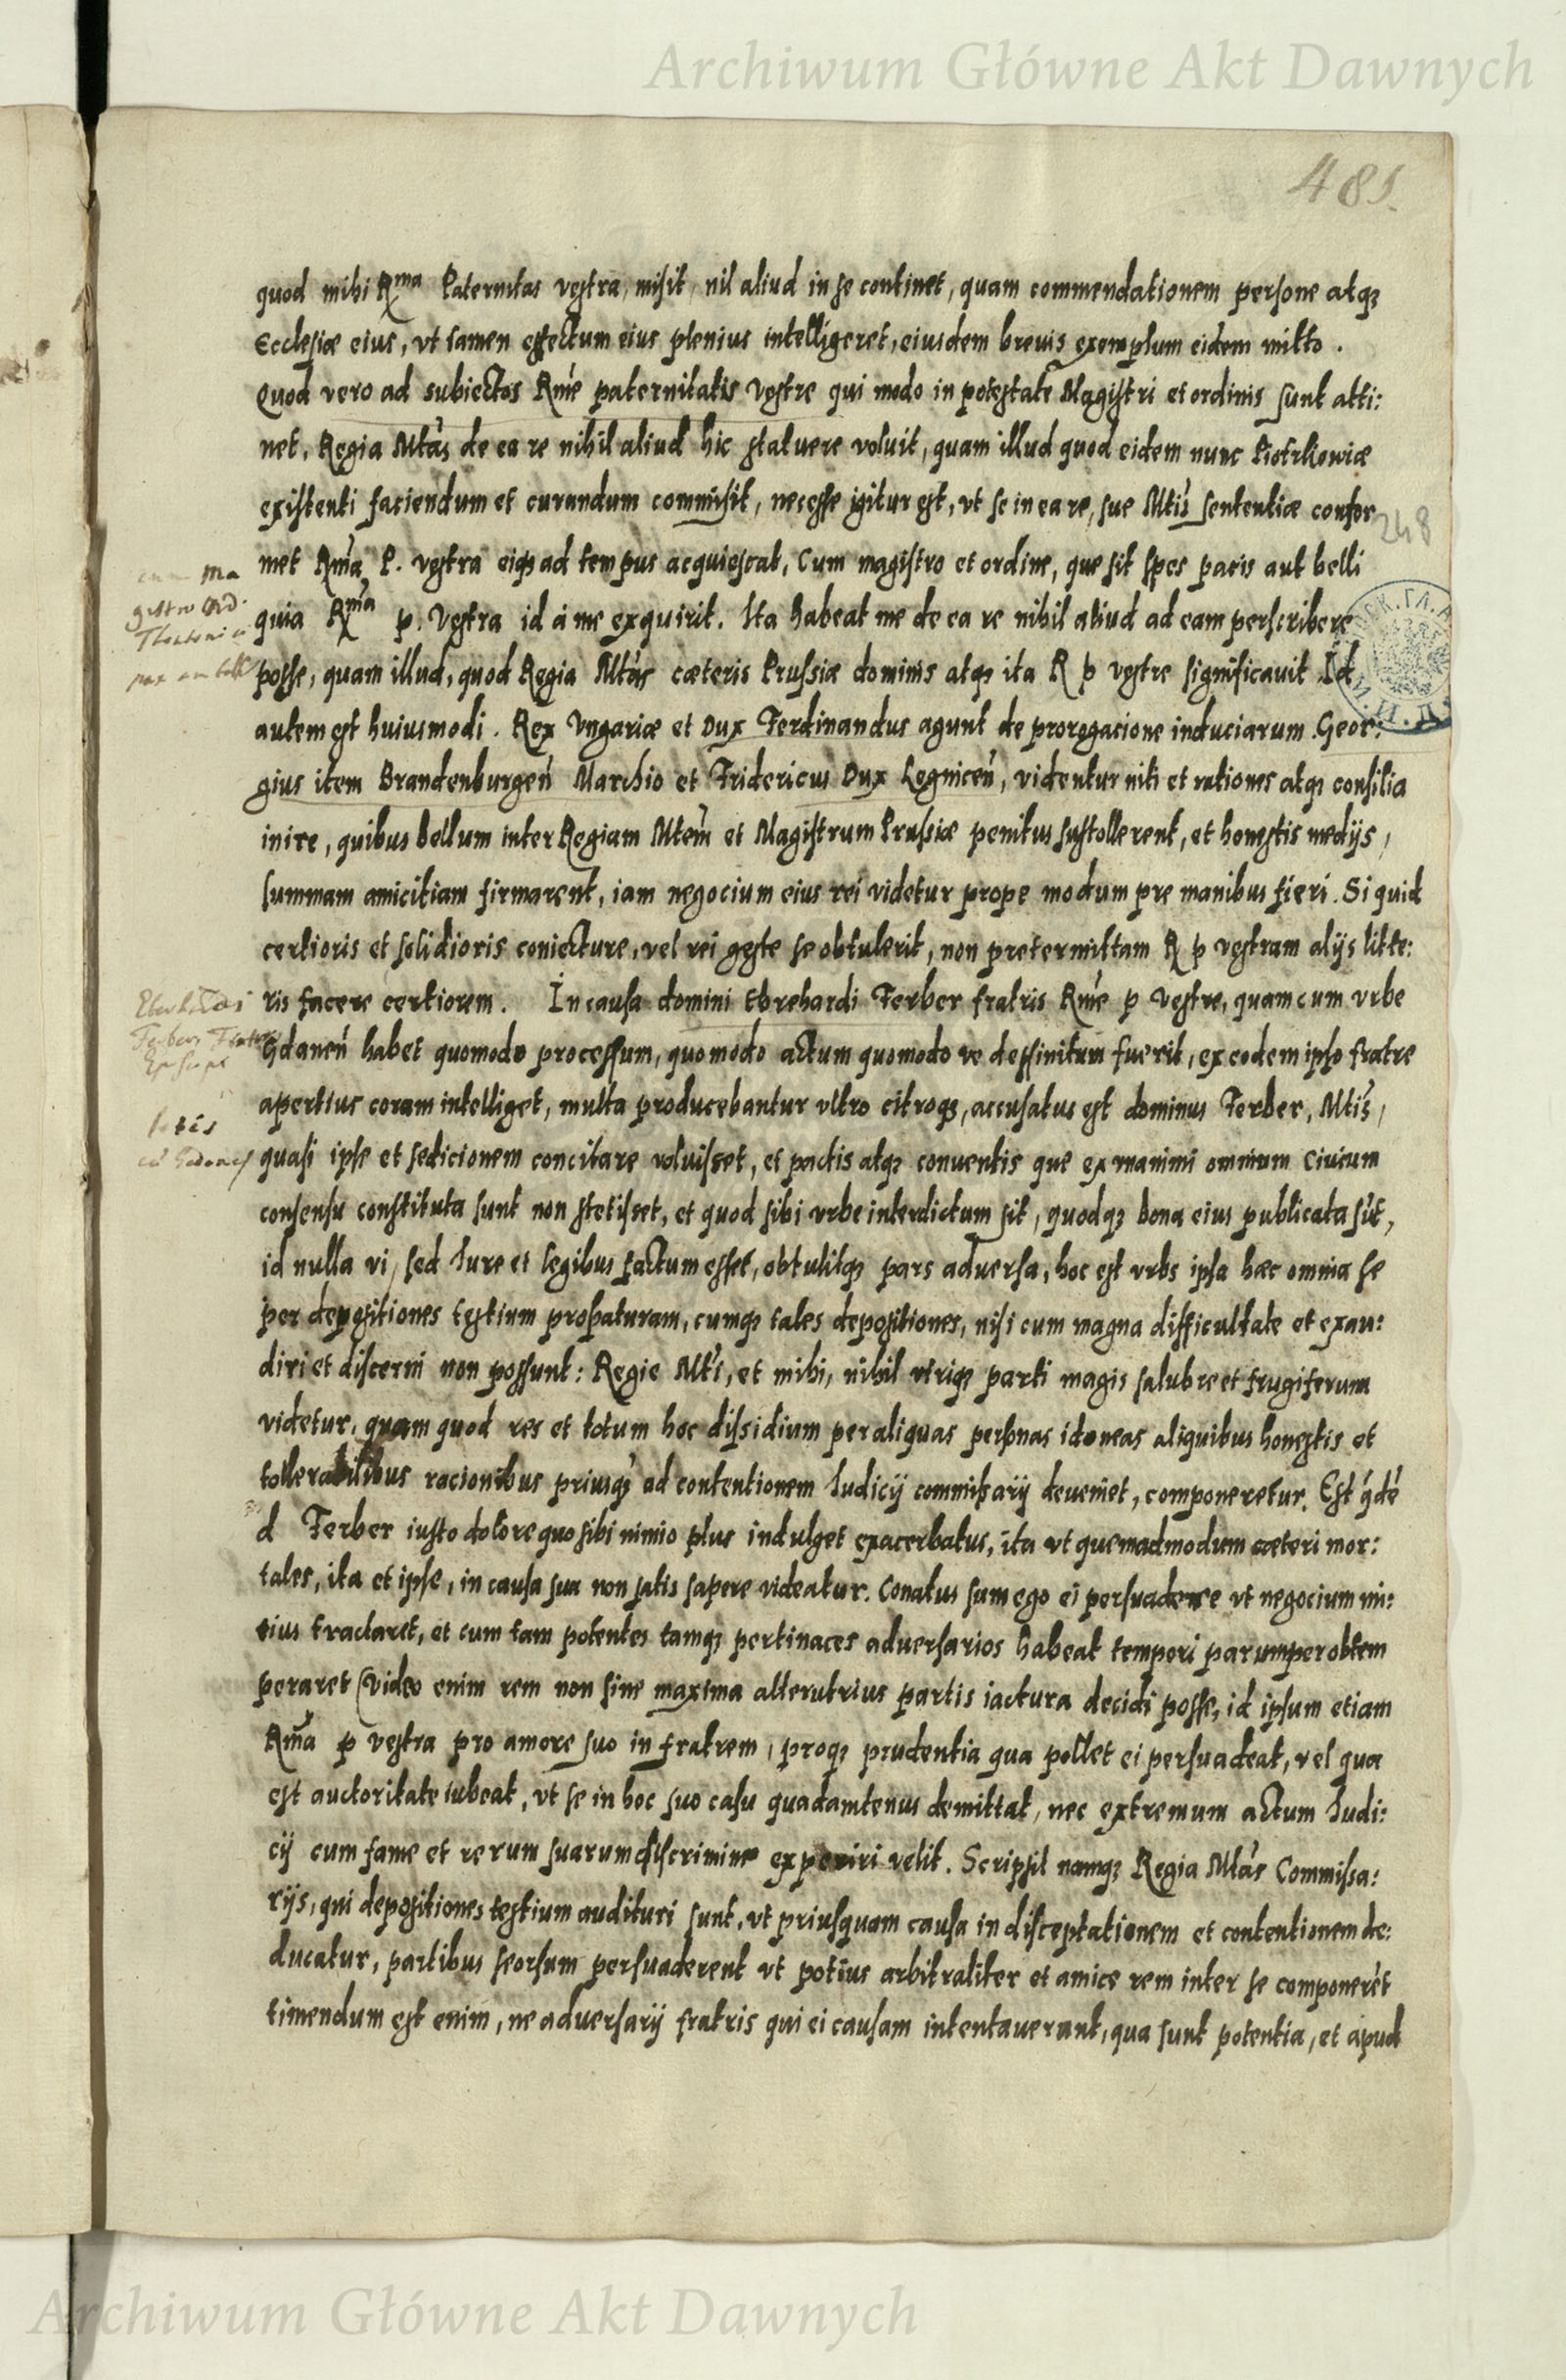 Archiwum Główne Akt Dawnych
481.
quod mihi Rma Paternitas vestra, misit, nil aliud in se continet, quam commendationem persone atqȝ
Ecclesiæ eius, vt tamen effectum eius plenius intelligeret, eiusdem brevis exemplum eidem mitto.
Quod vero ad subiectos Rme paternitatis vestre qui modo in potestate Magistri et ordinis sunt atti:
net, Regia Mtas de ea re nihil aliud hic statuere voluit, quam illud quod eidem nunc Piotrkowiæ
existenti faciendum et curandum commisit, necesse igitur est, vt se in ea re, sue Mtis sententiæ confor
248
met Rma P. vestra eiqȝ ad tempus acquiescat, Cum magistro et ordine, que sit spes pacis aut belli
cum ma
gistro Ord.
quia Rma p. Vestra id à me exquirit. Ita habeat me de ea re nihil aliud ad eam perscribere
posse, quam illud, quod Regia Mtas cæteris Prussiæ dominis atqȝ ita R p vestre significavit Id
autem est huiusmodi. Rex Vngariæ et Dux Ferdinandus agunt de prorogacione induciarum. Geor:
gius item Brandenburgen̄ Marchio et Fridericus Dux Legnicen̄, videntur niti et rationes atqȝ consilia
inire, quibus bellum inter Regiam Mtem et Magistrum Prussiæ penitus sustollerent, et honestis medijs,
summam amicitiam firmarent, iam negocium eius rei videtur prope modum pre manibus fieri. Si quid
certioris et solidioris coniecture, vel rei geste se obtulerit, non pretermittam R p vestram alijs litte:
ris facere certiorem. In causa domini Ebrehardi Ferber fratris Rme p Vestre, quam cum vrbe
Ferberi Fratris
Episcopi
Gdanen̄ habet quomodo processum, quomodo actum quomodo ve deffinitum fuerit, ex eodem ipso fratre
apertius coram intelliget, multa producebantur vltro citroqȝ, accusatus est dominus Ferber, Mtis,
quasi ipse et sedicionem concitare voluisset, et pactis atqȝ conventis que ex unanimi omnium Ciuium
consensu constituta sunt non stetisset, et quod sibi vrbe interdictum sit, quodqȝ bona eius publicata sūt,
id nulla vi, sed Iure et legibus factum esset, obtulitqȝ pars adversa, hoc est vrbs ipsa hæc omnia se
per depositiones testium probaturam, cumqȝ tales depositiones, nisi cum magna difficultate et exau:
diri et discerni non possunt: Regie Mti, et mihi, nihil vtriqȝ parti magis salubre et frugiferum
videtur, quam quod res et totum hoc dissidium per aliquas personas idoneas aliquibus honestis et
tollerabilibus racionibus priusqȝ ad contentionem Iudicij commissarij deveniet, componeretur. Est q̄dē
d Ferber iusto dolore quo sibi nimio plus indulget exacerbatus, ita vt quemadmodum cæteri mor:
tales, ita et ipse, in causa sua non satis sapere videatur. Conatus sum ego ei persuadere vt negocium mi:
tius tractaret, et cum tam potentes tamqȝ pertinaces adversarios habeat tempori parumper obtem
peraret (video enim rem non sine maxima alterutrius partis iactura decidi posse, id ipsum etiam
Rma p vestra pro amore suo in fratrem, proqȝ prudentia qua pollet ei persuadeat, vel qua
est auctoritate iubeat, vt se in hoc suo casu quadamtenus demittat, nec extremum actum Iudi:
cij cum fame et rerum suarum discrimine experiri velit. Scripsit namqȝ Regia Mtas Commissa:
rijs, qui depositiones testium audituri sunt, vt priusquam causa in disceptationem et contentionem de:
ducatur, partibus seorsum persuaderent vt potius arbitraliter et amice rem inter se componerēt
timendum est enim, ne adversarij fratris qui ei causam intentaverant, qua sunt potentia, et apud
Archiwum Główne Akt Dawnych